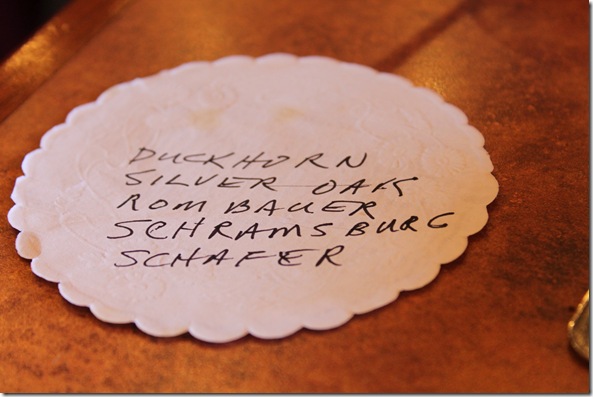 DUCKHORN
SILVER OAK
ROMBAUER
SCHRAMSBURG
SCHAFER